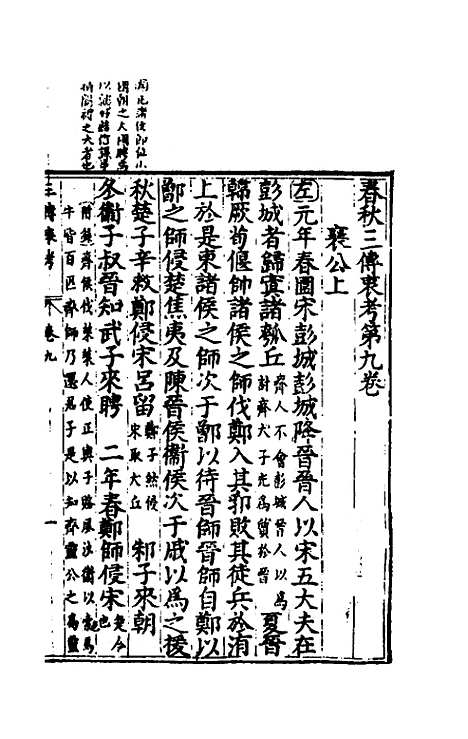 春秋三傳衷考第九卷
襄公上
左元年春圍宋彭城彭城降晉晉人以宋五大夫在
彭城者歸寘諸瓠丘齊人不會彭城晉人以為計齊大子光為質於晉夏晉
韓厥荀偃帥諸侯之師伐鄭入其郛敗其徒兵於洧
上於是東諸侯之師次于鄫以待晉師晉師自鄭以
鄫之師侵楚焦夷及陳晉侯衞侯次于戚以為之援
秋楚子辛救鄭侵宋呂留鄭子然侵宋取犬丘 邾子來朝
冬衞子叔晉知武子來聘 二年春鄭師侵宋楚令也
附齊侯伐萊萊人使正輿子賂夙沙衞以索馬
牛皆百匹齊師乃還君子是以知齊靈公之為靈
三傳衷考
卷九
一
凡諸侯即位小
國朝之大國聘焉
以繼好結信謀事
補闕禮之大者也